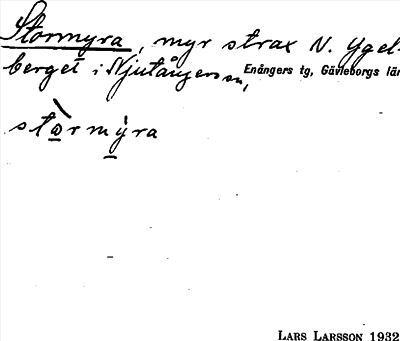 Stormyra, myr strax N. Ygels-
berget i Njutångers sn,
Enångers tg, Gävleborgs län
stòrmỳra
LARS LARSSON 1932